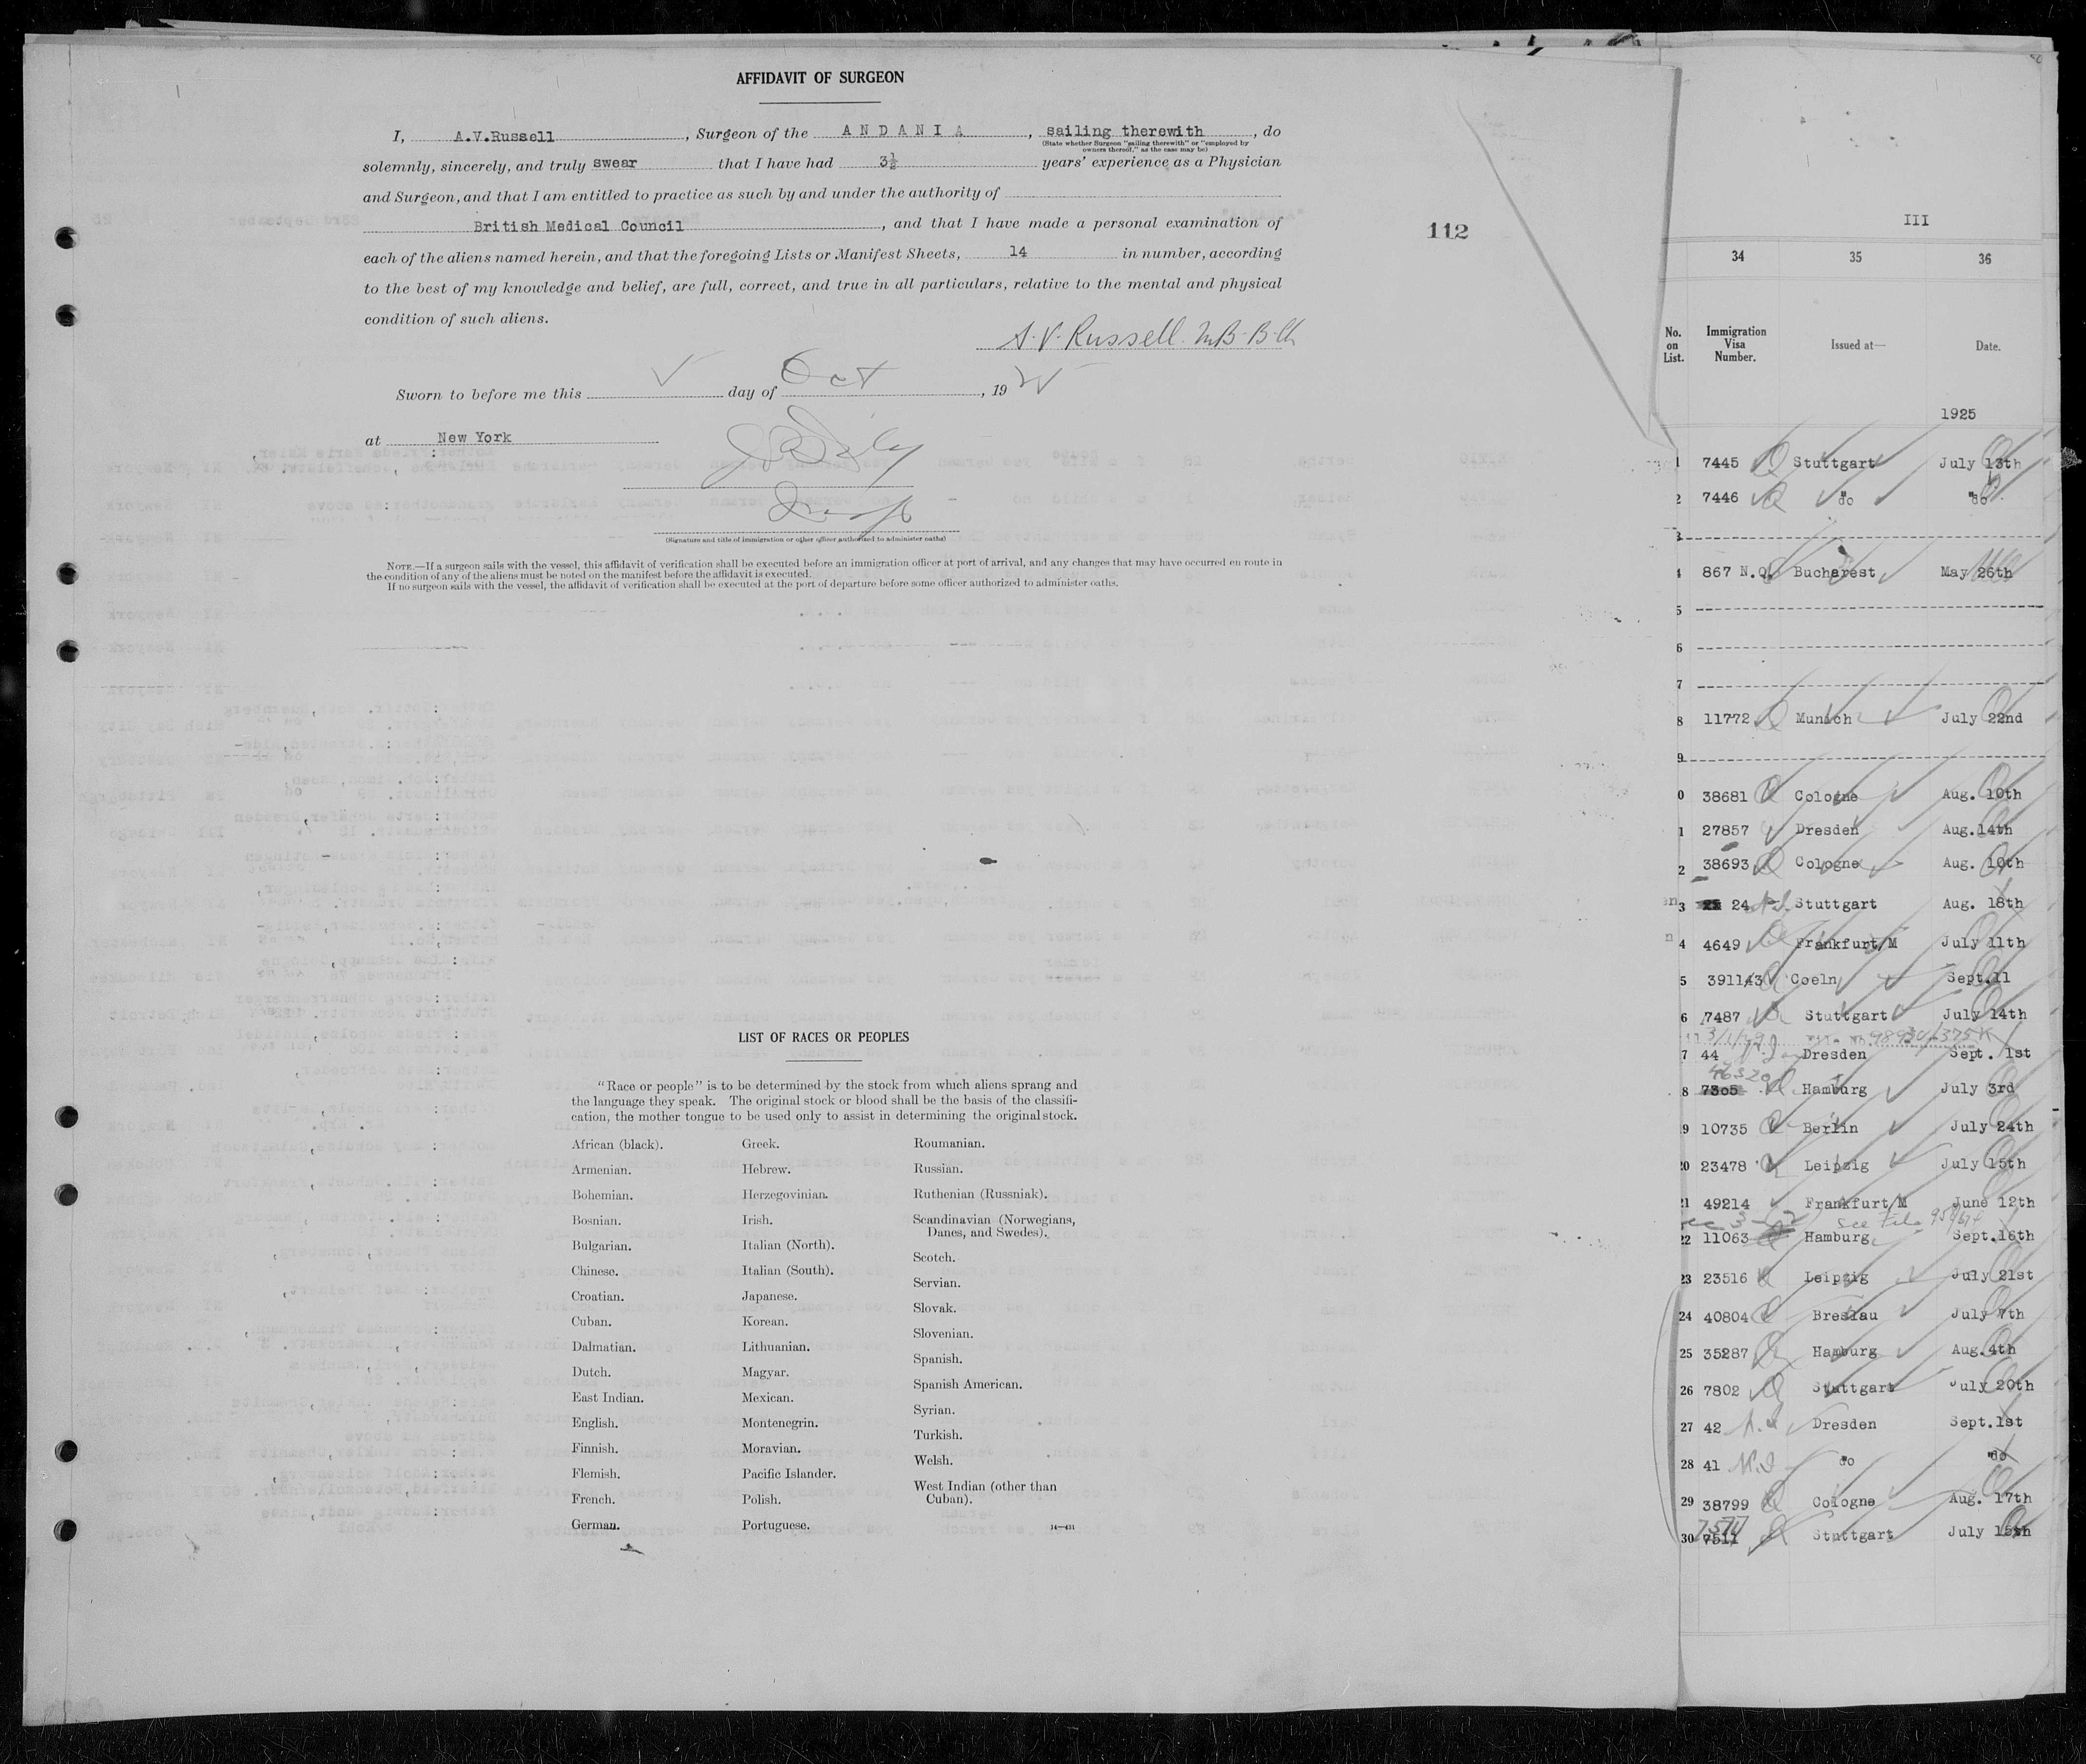 AFFIDAVIT OF SURGEON
I, A.V.Russell, Surgeon of the ANDANIA, sailing therewith, do
(State whether Surgeon "sailing therewith" or "employed by
owners thereof," as the case may be)
solemnly, sincerely, and truly swear that I have had 3½ years' experience as a Physician
and Surgeon, and that I am entitled to practice as such by and under the authority of
British Medical Council, and that I have made a personal examination of
each of the aliens named herein, and that the foregoing Lists or Manifest Sheets, 14 in number, according
to the best of my knowledge and belief, are full, correct, and true in all particulars, relative to the mental and physical
condition of such aliens.
A.V. Russell. M.B. B.Ch
Sworn to before me this day of Oct, 19
at New York
(Signature and title of immigration or other officer authorized to administer oaths)
NOTE.—If a surgeon sails with the vessel, this affidavit of verification shall be executed before an immigration officer at port of arrival, and any changes that may have occurred en route in
the condition of any of the aliens must be noted on the manifest before the affidavit is executed.
If no surgeon sails with the vessel, the affidavit of verification shall be executed at the port of departure before some officer authorized to administer oaths.
112
LIST OF RACES OR PEOPLES
"Race or people" is to be determined by the stock from which aliens sprang and
the language they speak. The original stock or blood shall be the basis of the classifi-
cation, the mother tongue to be used only to assist in determining the original stock.
African (black).
Armenian.
Bohemian.
Bosnian.
Bulgarian.
Chinese.
Croatian.
Cuban.
Dalmatian.
Dutch.
East Indian.
English.
Finnish.
Flemish.
French.
German.
Greek.
Hebrew.
Herzegovinian.
Irish.
Italian (North).
Italian (South).
Japanese.
Korean.
Lithuanian.
Magyar.
Mexican.
Montenegrin.
Moravian.
Pacific Islander.
Polish.
Portuguese.
Roumanian.
Russian.
Ruthenian (Russniak).
Scandinavian (Norwegians,
Danes, and Swedes).
Scotch.
Servian.
Slovak.
Slovenian.
Spanish.
Spanish American.
Syrian.
Turkish.
Welsh.
West Indian (other than
Cuban).
14—431
III
34 35 36
No. on List. Immigration Visa Number. Issued at— Date.
1925
1 7445 Stuttgart July 13th
2 7446 "do "do
3
4 867 N.Q. Bucharest May 26th
5
6
7
8 11772 Munich July 22nd
9
0 38681 Cologne Aug. 10th
1 27857 Dresden Aug.14th
2 38693 Cologne Aug. 10th
3 24 Stuttgart Aug. 18th
4 4649 Frankfurt/M July 11th
5 39143 Coeln Sept.11
6 7487 Stuttgart July 14th
7 44 Dresden Sept. 1st
46320
8 7305 Hamburg July 3rd
9 10735 Berlin July 24th
20 23478 Leipzig July 15th
21 49214 Frankfurt/M June 12th
See File
22 11063 Hamburg Sept.16th
23 23516 Leipzig July 21st
24 40804 Breslau July 7th
25 35287 Hamburg Aug.4th
26 7802 Stuttgart July 20th
27 42 Dresden Sept.1st
28 41 "do "do
29 38799 Cologne Aug. 17th
30 7511 Stuttgart July 15th